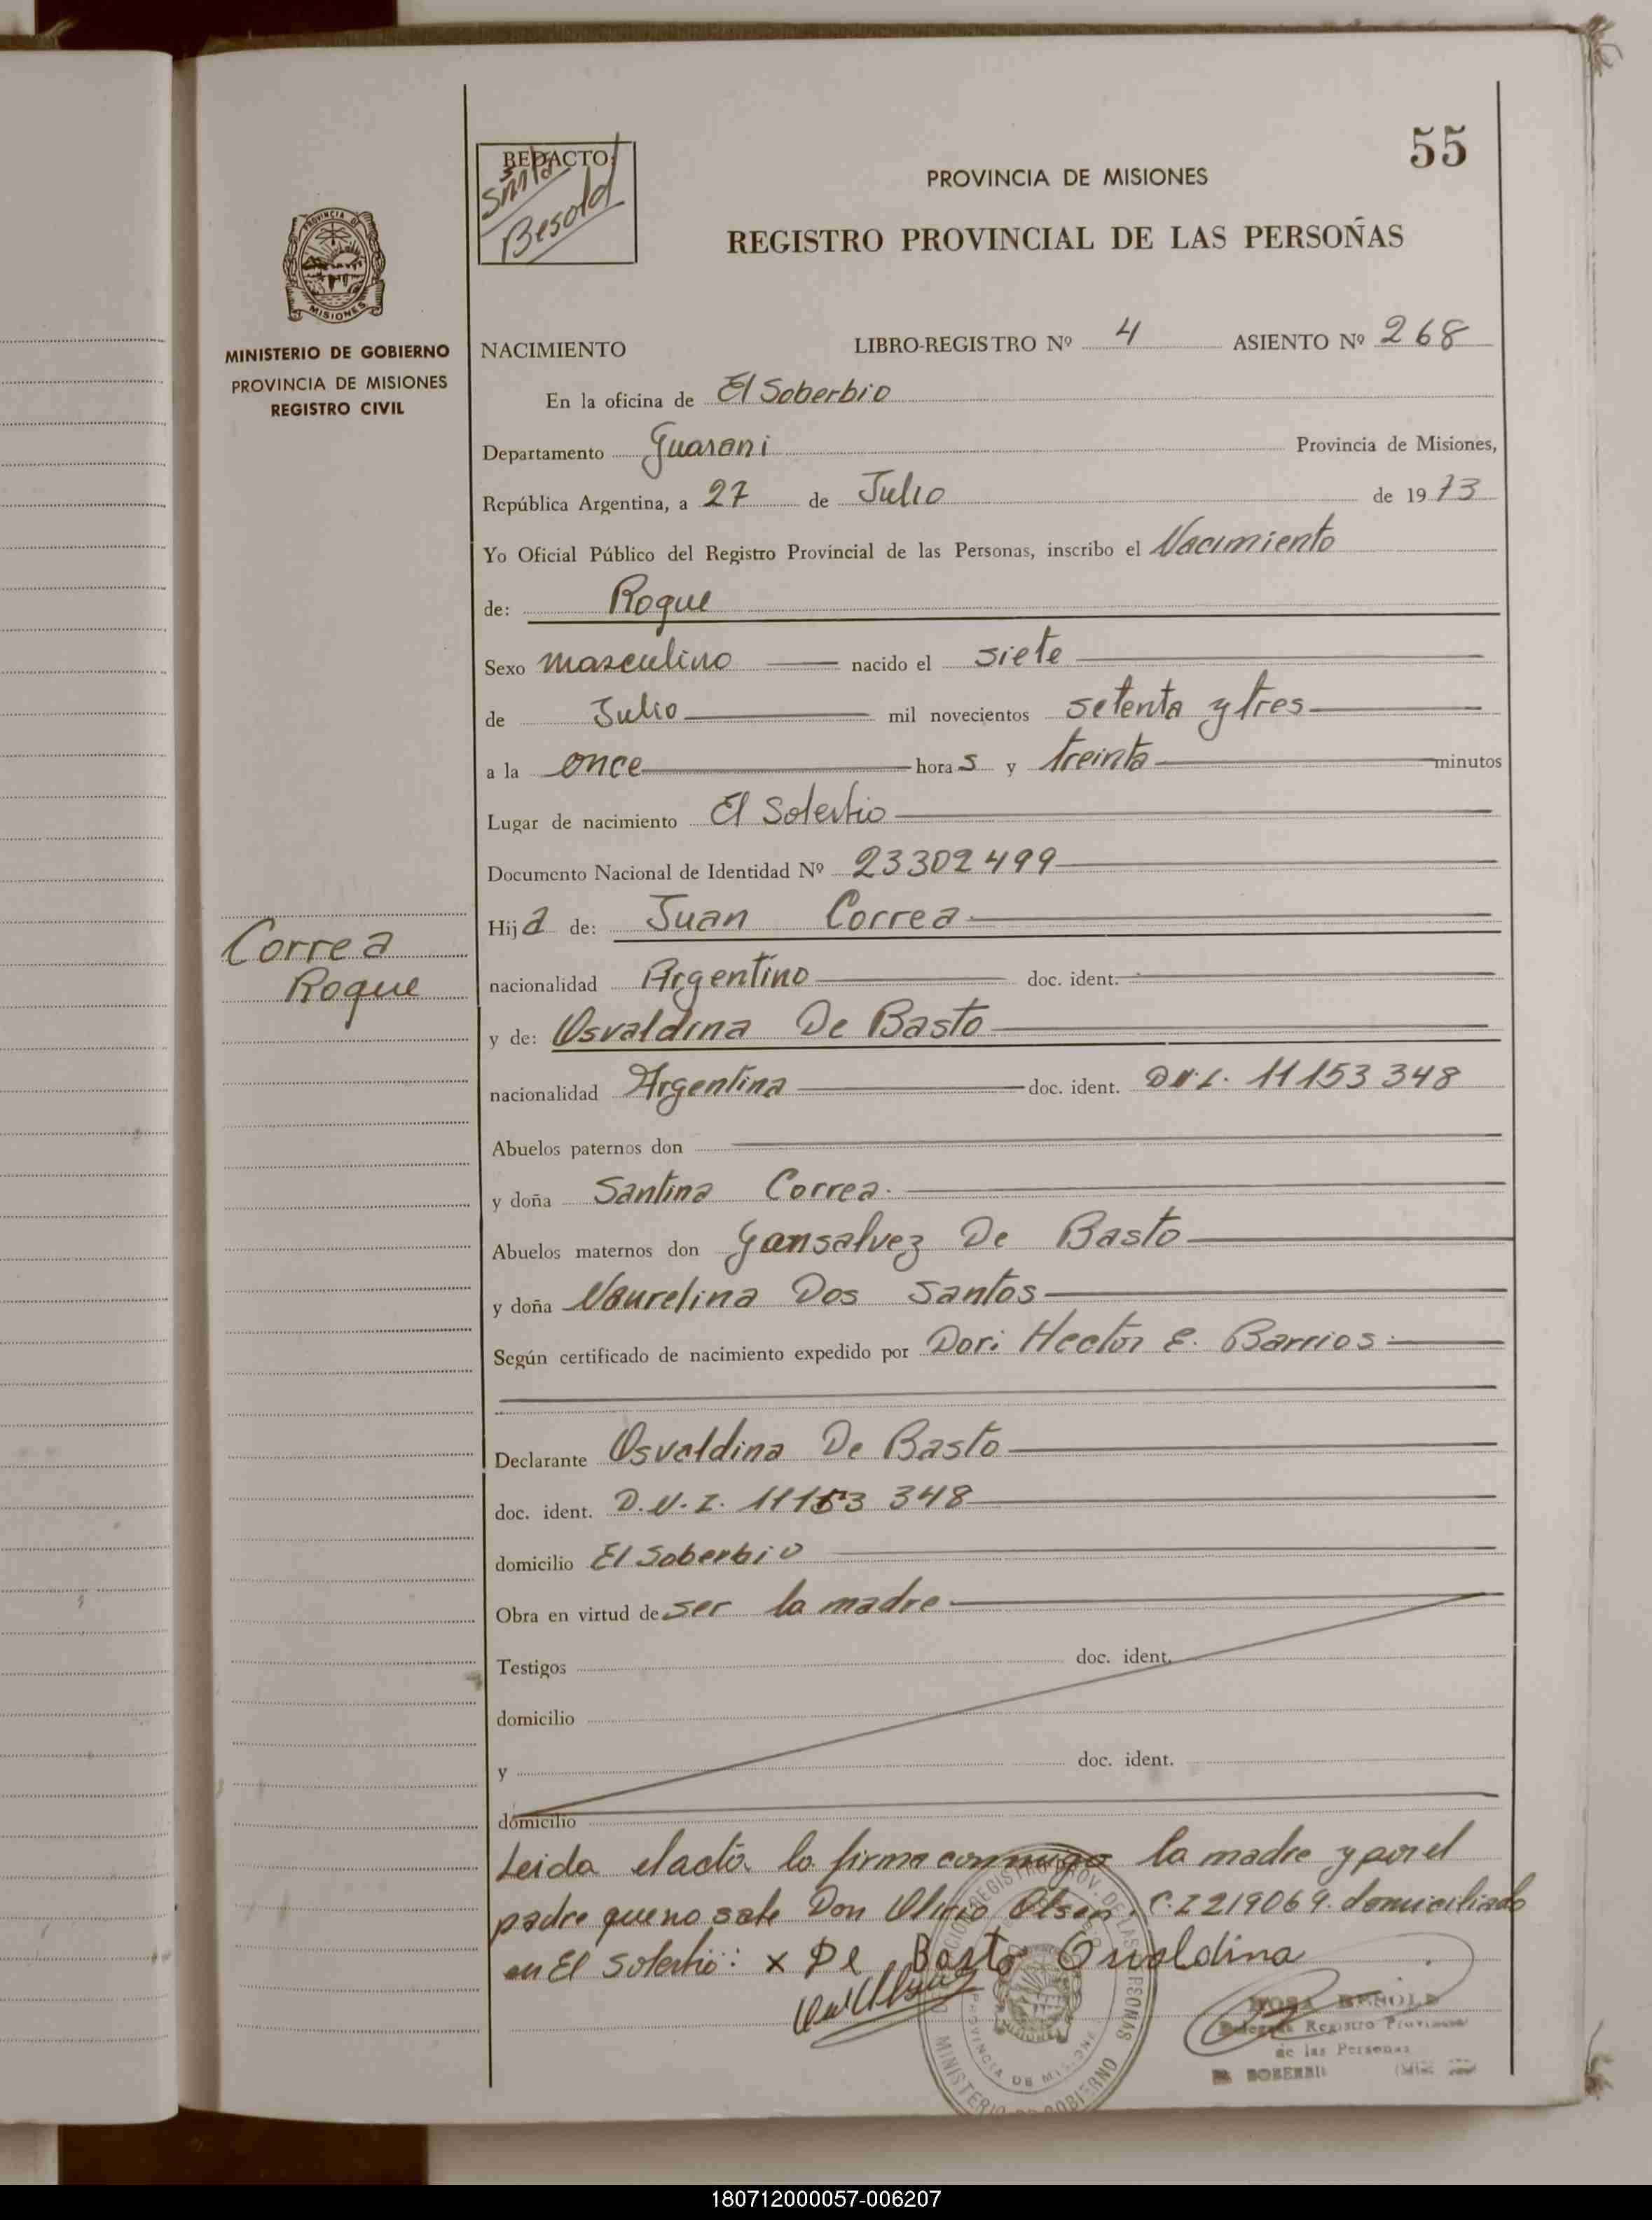 55
REDACTO:
Besold
PROVINCIA DE MISIONES
REGISTRO PROVINCIAL DE LAS PERSOÑAS
PROVINCIA DE
MISIONES
MINISTERIO DE GOBIERNO
PROVINCIA DE MISIONES
REGISTRO CIVIL
NACIMIENTO LIBRO-REGISTRO Nº 4 ASIENTO Nº 268
En la oficina de El Soberbio
Departamento Guarani Provincia de Misiones,
República Argentina, a 27 de Julio de 1973
Yo Oficial Público del Registro Provincial de las Personas, inscribo el Nacimiento
de: Roque
Sexo masculino nacido el siete
de Julio mil novecientos setenta y tres
a la once horas y treinta minutos
Lugar de nacimiento El Soberbio
Documento Nacional de Identidad Nº 23302499
Correa
Roque
Hija de: Juan Correa
nacionalidad Argentino doc. ident.
y de: Osvaldina De Basto
nacionalidad Argentina doc. ident. D.N.I. 11153348
Abuelos paternos don
y doña Santina Correa.
Abuelos maternos don Gansalvez De Basto
y doña Naurelina Dos Santos
Según certificado de nacimiento expedido por Dori Hector E. Barrios
Declarante Osvaldina De Basto
doc. ident. D.N.I. 11153 348
domicilio El Soberbio
Obra en virtud de ser la madre
Testigos doc. ident.
domicilio
y doc. ident.
domicilio
Leida el acta lo firma conmigo la madre y por el
padre que no sabe Don Olsen. C.I 219069. domiciliado
en El Soberbio: x De Basto Osvaldina
ROSA BESOLD
Registro Provincial
de las Personas
SOBERBIO
MINISTERIO DE GOBIERNO
PROVINCIA DE MISIONES
180712000057-006207